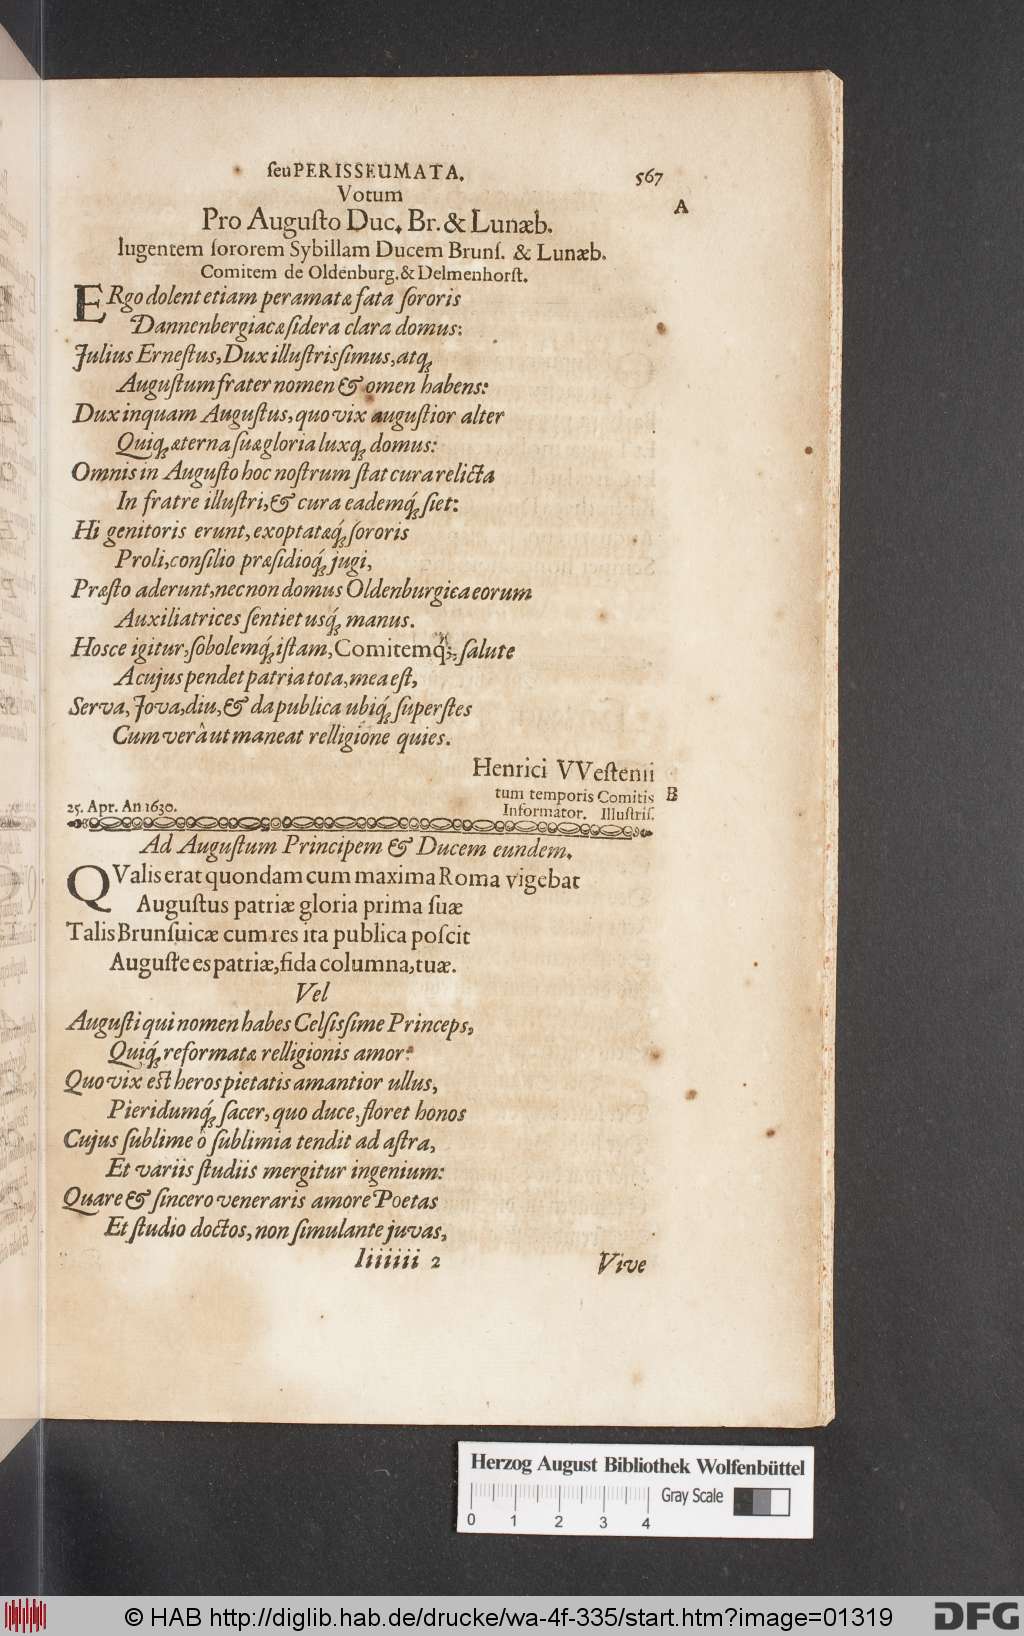 ſeu PERISSEUMATA. 567
Votum A
Pro Auguſto Duc. Br. & Lunæb.
lugentem ſororem Sybillam Ducem Brunſ. & Lunæb.
Comitem de Oldenburg. & Delmenhorſt.
ERgo dolent etiam peramatæ fata ſororis
Dannenbergiacæ ſidera clara domus:
Julius Erneſtus, Dux illuſtrisſimus, atq́;
Auguſtum frater nomen & omen habens:
Dux inquam Auguſtus, quo vix auguſtior alter
Quiq́; æterna ſuæ gloria luxq́; domus:
Omnis in Auguſto hoc noſtrum ſtat cura relicta
In fratre illuſtri, & cura eademq́; ſiet:
Hi genitoris erunt, exoptatæq́; ſororis
Proli, conſilio præſidioq́; jugi,
Præſto aderunt, nec non domus Oldenburgica eorum
Auxiliatrices ſentiet usq́; manus.
Hosce igitur, ſobolemq́; iſtam, Comitemq́;, ſalute
A cujus pendet patria tota, mea eſt,
Serva, Jova, diu, & da publica ubiq́; ſuperſtes
Cum verâ ut maneat relligione quies.
Henrici VVeſtenii
tum temporis Comitis B
25. Apr. An 1630. Informator. Illuſtriſ.
Ad Auguſtum Principem & Ducem eundem.
QValis erat quondam cum maxima Roma vigebat
Auguſtus patriæ gloria prima ſuæ
Talis Brunſuicæ cum res ita publica poſcit
Auguſte es patriæ, fida columna, tuæ.
Vel
Auguſti qui nomen habes Celſisſime Princeps,
Quiq́; reformatæ relligionis amor:
Quo vix eſt heros pietatis amantior ullus,
Pieridumq́; ſacer, quo duce, floret honos
Cujus ſublime ô ſublimia tendit ad aſtra,
Et variis ſtudiis mergitur ingenium:
Quare & ſincero veneraris amore Poetas
Et ſtudio doctos, non ſimulante juvas,
Iiiiiii 2 Vive
Herzog August Bibliothek Wolfenbüttel
Gray Scale
0 1 2 3 4
© HAB http://diglib.hab.de/drucke/wa-4f-335/start.htm?image=01319
DFG